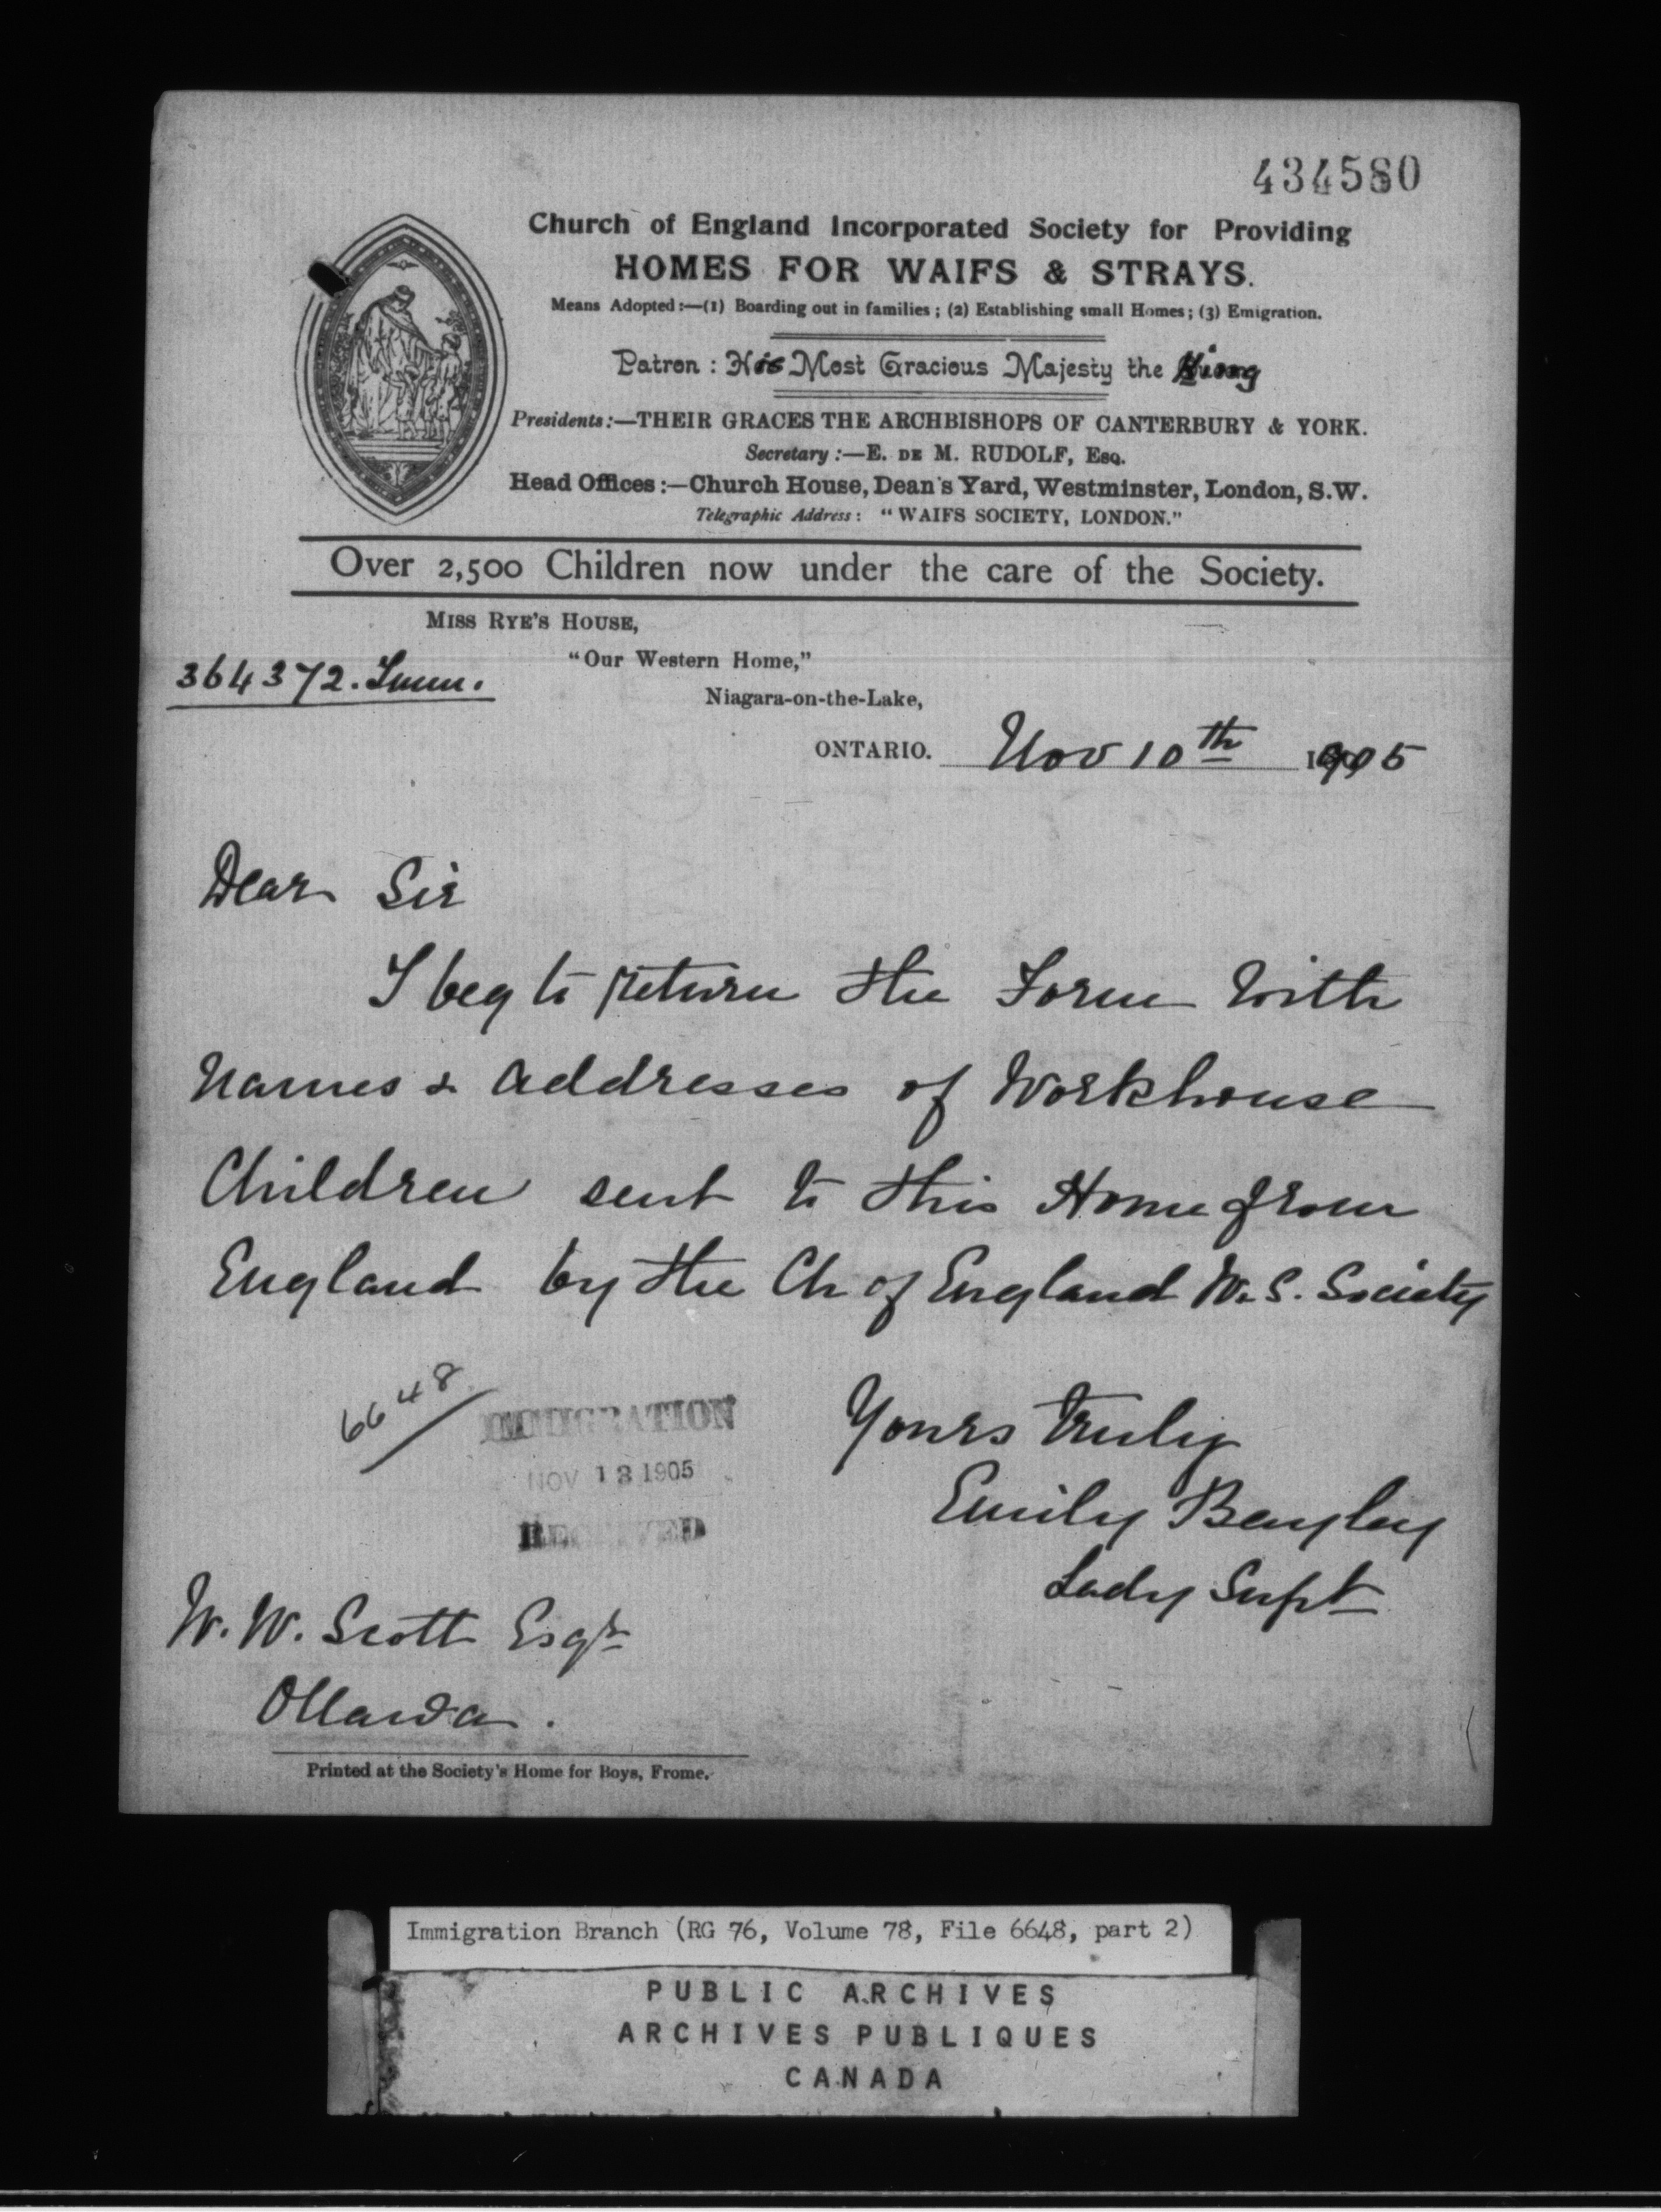 434580
Church of England Incorporated Society for Providing
HOMES FOR WAIFS & STRAYS.
Means Adopted:—(1) Boarding out in families; (2) Establishing small Homes; (3) Emigration.
Patron: His Most Gracious Majesty the King
Presidents:—THEIR GRACES THE ARCHBISHOPS OF CANTERBURY & YORK.
Secretary:—E. DE M. RUDOLF, Esq.
Head Offices:—Church House, Dean's Yard, Westminster, London, S.W.
Telegraphic Address: "WAIFS SOCIETY, LONDON."
Over 2,500 Children now under the care of the Society.
MISS RYE'S HOUSE,
"Our Western Home,"
364372. Imm.
Niagara-on-the-Lake,
ONTARIO. Nov 10th 1905
Dear Sir
I beg to return the Form with
Names & Addresses of Workhouse
Children sent to this Home from
England by the Ch of England W. S. Society
6648
IMMIGRATION
NOV 13 1905
RECEIVED
Yours truly
Emily Bayley
Lady Supt
W. W. Scott Esqr
Ottawa.
Printed at the Society's Home for Boys, Frome.
Immigration Branch (RG 76, Volume 78, File 6648, part 2)
PUBLIC ARCHIVES
ARCHIVES PUBLIQUES
CANADA